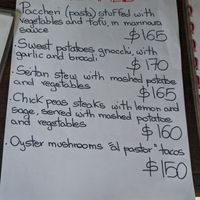 Paccheri (pasta) stuffed with
vegetables and tofu, in marinara
sauce $165
. Sweet potatoes gnocchi, with
garlic and brocoli $170
. Seitan stew with mashed potatoe
and vegetables $165
. Chick peas steaks with lemon and
sage, served with mashed potatoe
and vegetables $160
. Oyster mushrooms "al pastor" tacos
$150